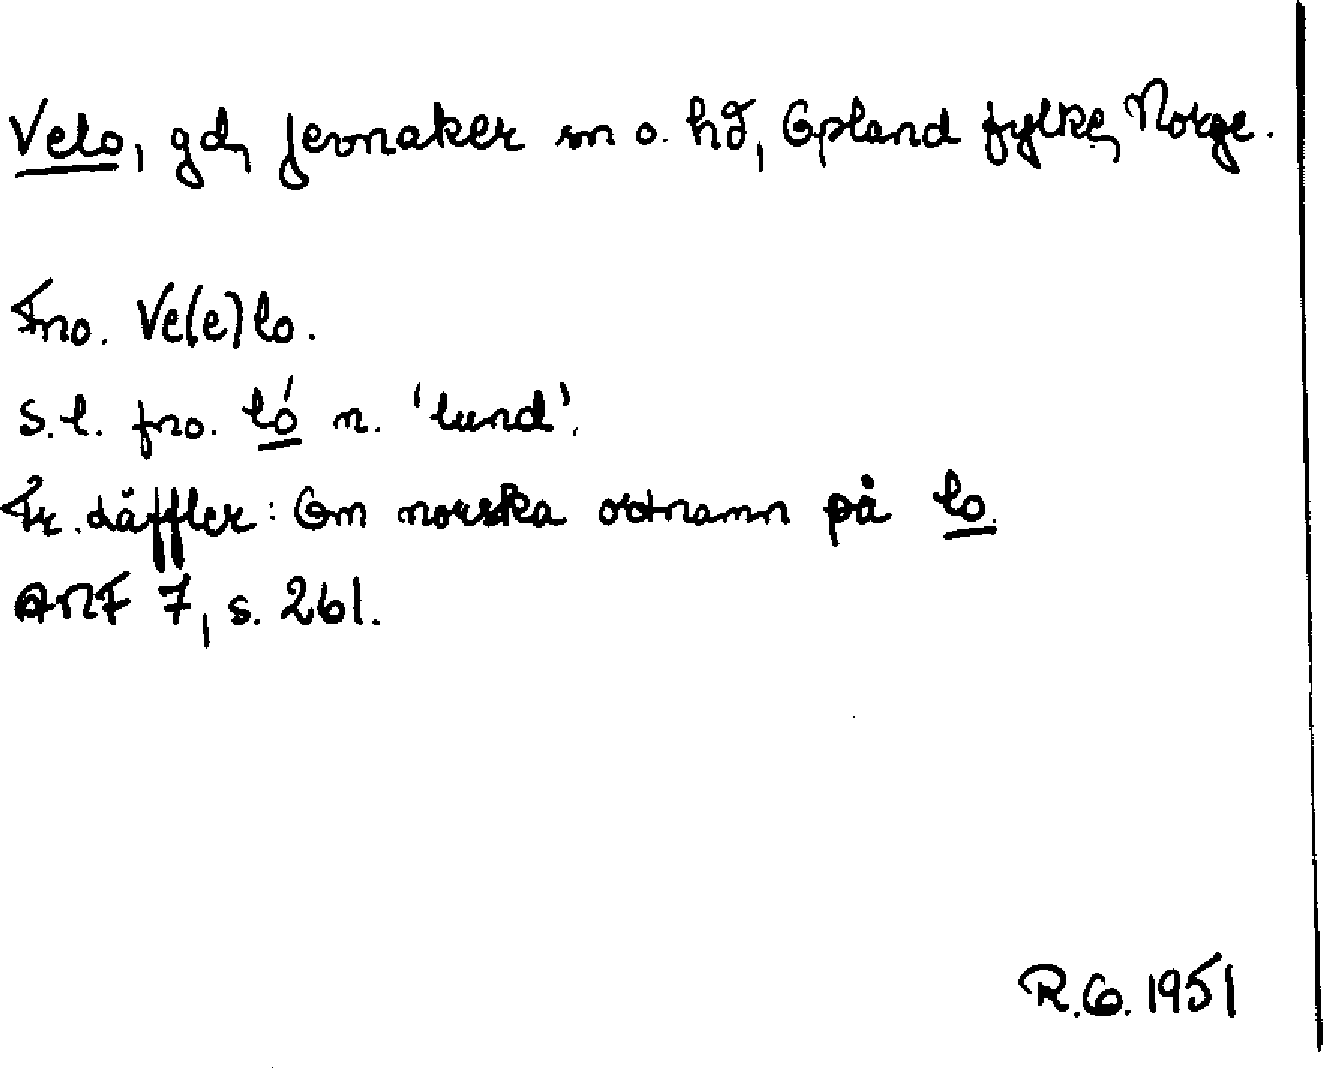 Velo, gd, Jevnaker sn o. hd, Opland fylke, Norge.
Fno. Ve(e)lo.
S.l. fno. ló n. 'lund'.
Fr. Läffler: Om norska ortnamn på lo.
ANF 7, s. 261.
R.O. 1951